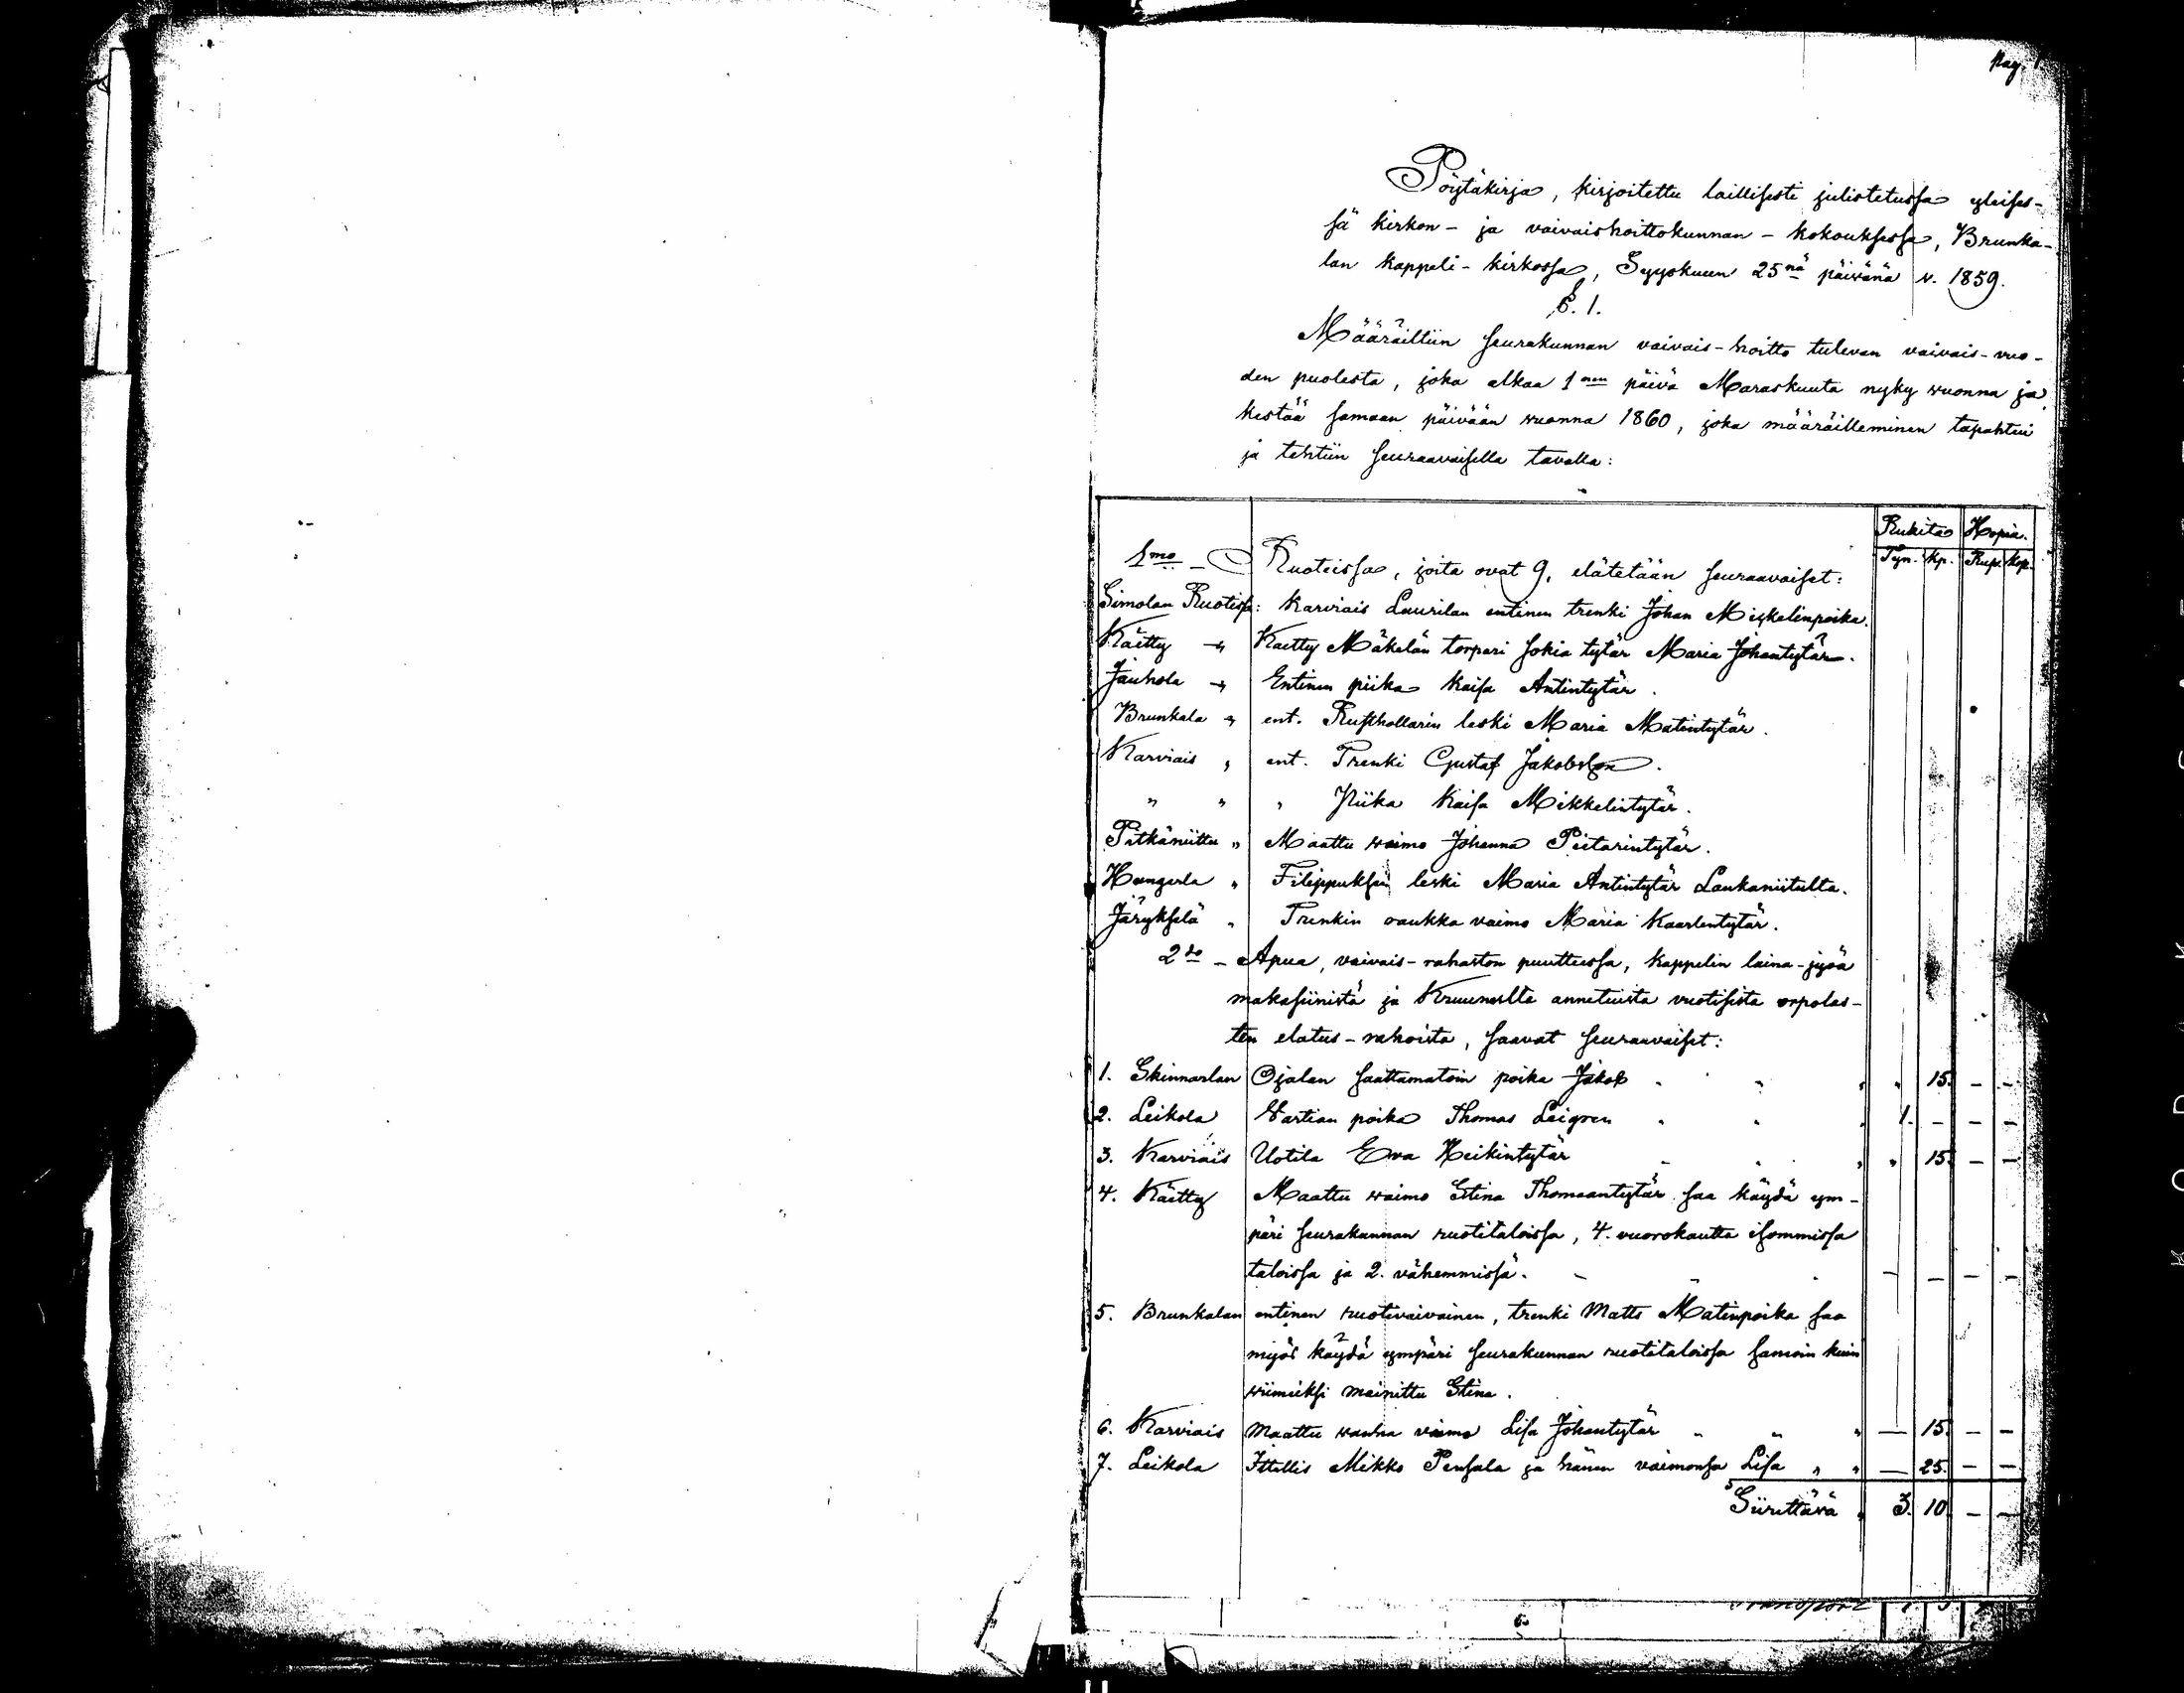 Pag. 1.
Pöytäkirja, kirjoitettu laillisesti julistetussa yleises-
sä kirkon- ja vaivaishoittokunnan-kokouksessa, Brunka-
lan kappeli-kirkossa, Syyskuun 25nä päivänä v. 1859.
§. 1.
Määräiltiin seurakunnan vaivais-hoitto tulevan vaivais-vuo-
den puolesta, joka alkaa 1 nen päivä Maraskuuta nyky vuonna ja
kestää samaan päivään vuonna 1860, joka määräilleminen tapahtui
ja tehtiin seuraavaisella tavalla:
Rukiita Hopia.
Tyn. kp. Rup. Kop.
1mo - Ruoteissa, joita ovat 9, elätetään seuraavaiset:
Simolan Ruotissa: Karviais Laurilan entinen trenki Johan Mickelinpoika.
Käitty " Kaitty Mäkelän torpari sokia tytär Maria Johantytär.
Jauhola " Entinen piika Kaisa Antintytär.
Brunkala " ent. Rusthollarin leski Maria Matintytär.
Karviais " ent. Trenki Gustaf Jakobsson.
" " " Piika Kaisa Mikkelintytär.
Pitkäniittu " Maattu vaimo Johanna Pietarintytär.
Hungerla " Filippuksen leski Maria Antintytär Laukaniitulta.
Järykselä " Trenkin raukka vaimo Maria Kaarlentytär.
2do - Apua, vaivais-rahaston puuttessa, kappelin laina-jyvä
makasiinistä ja Kruunulta annetuista vuotisista orpolas-
ten elatus-rahoista, saavat seuraavaiset:
1. Skinnarlan Ojalan saattamatoin poika Jakob " 15. - -
2. Leikola Vartian poika Thomas Leigren 1. - - -
3. Karviais Uotila Eva Heikintytär " 15. - -
4. Käitty Maattu vaimo Stina Thomaantytär saa käydä ym-
päri seurakunnan ruotitaloissa, 4. vuorokautta isommissa
taloissa ja 2. vähemmissä. - - - -
5. Brunkalan entinen ruotivaivainen, trenki Matts Matinpoika saa
myös käydä ympäri seurakunnan ruotitaloissa samoin kuin
viimeksi mainittu Stina.
6. Karviais Maattu vanha vaimo Lisa Johantytär " " " - 15. - -
7. Leikola Itellis Mikko Pensala ja hänen vaimonsa Lisa " " - 25. - -
Siirettävä 3. 10. - -
Transport